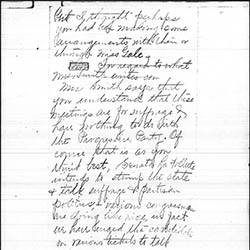 But I thought perhaps
you had life making some
arrangements with them or
through Miss Gale.
In regard to what
Miss Smith writes you
Mrs Smith says that
you understand that these
meetings are for suffrage &
have nothing to do with
the Progressive Party. Of
course that is as you
think best, Senator
intends to stump the state
& talk suffrage & partisan
politics & various congressmen
are doing likewise, in fact
we have urged the candidates
on various tickets to talk